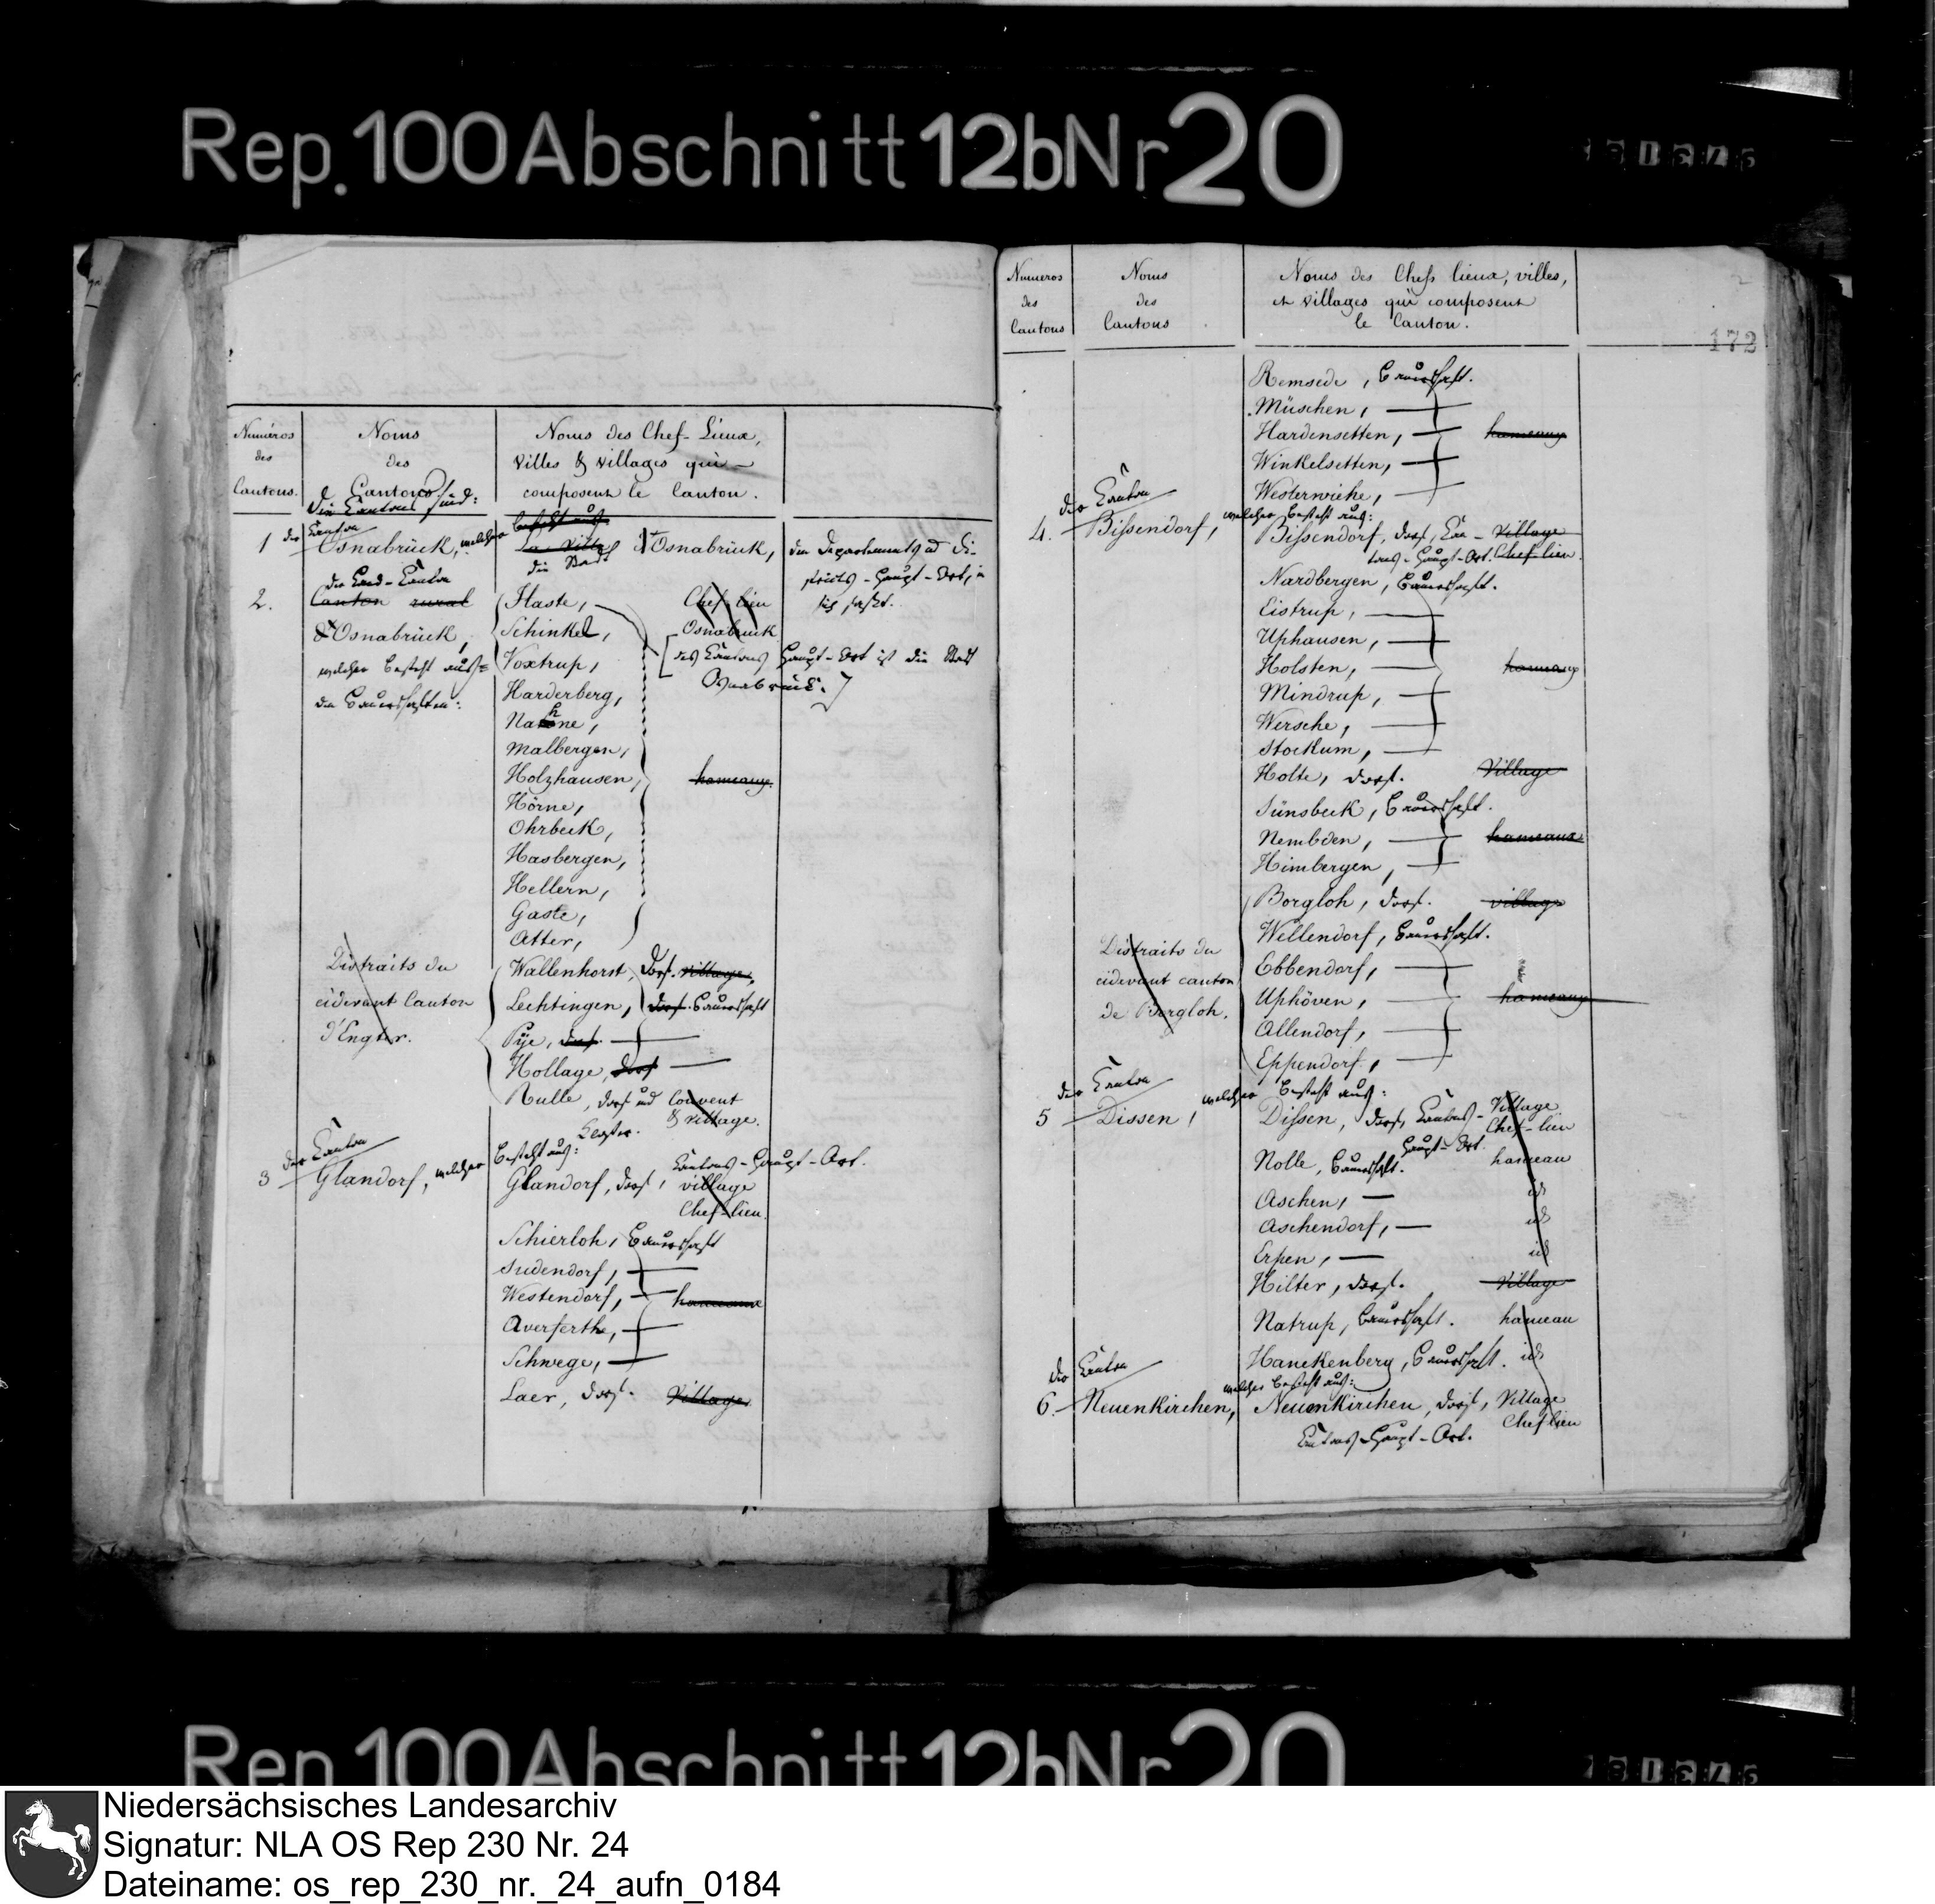 Rep. 100 Abschnitt 12b Nr 20
57315
Numéros
des
Cantons.
Noms
des
Cantons
Noms des Chef-Lieux,
villes & villages qui
composent le Canton.
die Cantons sind:
1 der Canton
Osnabrück, welcher besteht aus
La Ville d'Osnabrück,
die Stadt
den Departements und Di-
stricts-Haupt-Ort, in
sich faßt.
der Land-Canton
2. Canton rural
d'Osnabrück,
welcher besteht aus
den Bauerschaften:
Haste,
Schinkel,
Voxtrup,
Chef-lieu
Osnabrück
des Cantons Haupt-Ort ist die Stadt
Osnabrück.
Harderberg,
Nahne,
Malbergen,
Holzhausen,
hameaux.
Hörne,
Ohrbeck,
Hasbergen,
Hellern,
Gaste,
Atter,
Distraits du
cidevant Canton
d'Engter.
Wallenhorst, Dorf. village,
Lechtingen, Dorf. Bauerschaft
Pÿe, Dorf.
Hollage, Dorf
Rulle, Dorf und Couvent
Kloster. & village.
der Canton
3 Glandorf, welcher besteht aus:
Glandorf, Dorf, Cantons-Haupt-Ort.
village
Chef-lieu.
Schierloh, Bauerschaft
Sudendorf,
Westendorf,
hameaux
Averferthe,
Schwege,
Laer, Dorf. Village
Numeros
des
Cantons
Noms
des
Cantons
Noms des Chefs lieux, villes,
et villages qui composent
le Canton.
172
Remsede, Bauerschaft.
Müschen,
Hardensetten, hameaux
Winkelsetten,
Westerwiehe,
der Canton
4. Bissendorf, welcher besteht aus:
Bissendorf, Dorf, Can- Village
tons-Haupt-Ort. Chef-lieu.
Nardbergen, Bauerschaft.
Eistrup,
Uphausen,
Holsten, hameaux
Mindrup,
Wersche,
Stockum,
Holte, Dorf. Village
Sünsbeck, Bauerschaft.
Nembden, hameaux
Himbergen,
Borgloh, Dorf. village
Wellendorf, Bauerschaft.
Distraits du
cidevant canton
de Borgloh.
Ebbendorf,
Uphöven, hameaux
Allendorf,
Eppendorf,
der Canton
5 Dissen, welcher besteht aus:
Dissen, Dorf, Cantons- Village
Haupt-Ort. Chef-lieu
Nolle, Bauerschaft. hameau
Aschen, id
Aschendorf, id
Erpen, id
Hilter, Dorf. Village
Natrup, Bauerschaft. hameau
Hanckenberg, Bauerschaft. id
der Canton
6. Neuenkirchen, welcher besteht aus:
Neuenkirchen, Dorf, Village
Cantons-Haupt-Ort. Chef lieu
Rep. 100 Abschnitt 12b Nr 20
57315
Niedersächsisches Landesarchiv
Signatur: NLA OS Rep 230 Nr. 24
Dateiname: os_rep_230_nr._24_aufn_0184